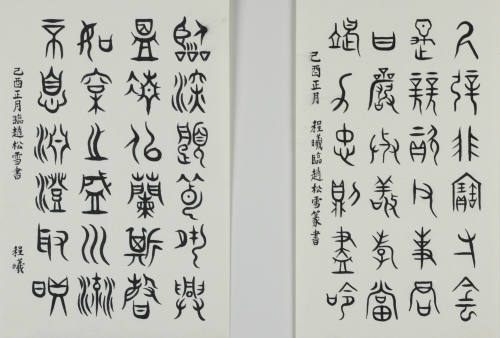 尺璧非寶寸陰
是競資父事君
曰嚴與敬孝當
竭力忠則盡命
己酉正月 程曦臨趙松雪篆書
臨深履薄夙興
溫凊似蘭斯馨
如松之盛川流
不息淵澄取映
己酉正月臨趙松雪書 程曦